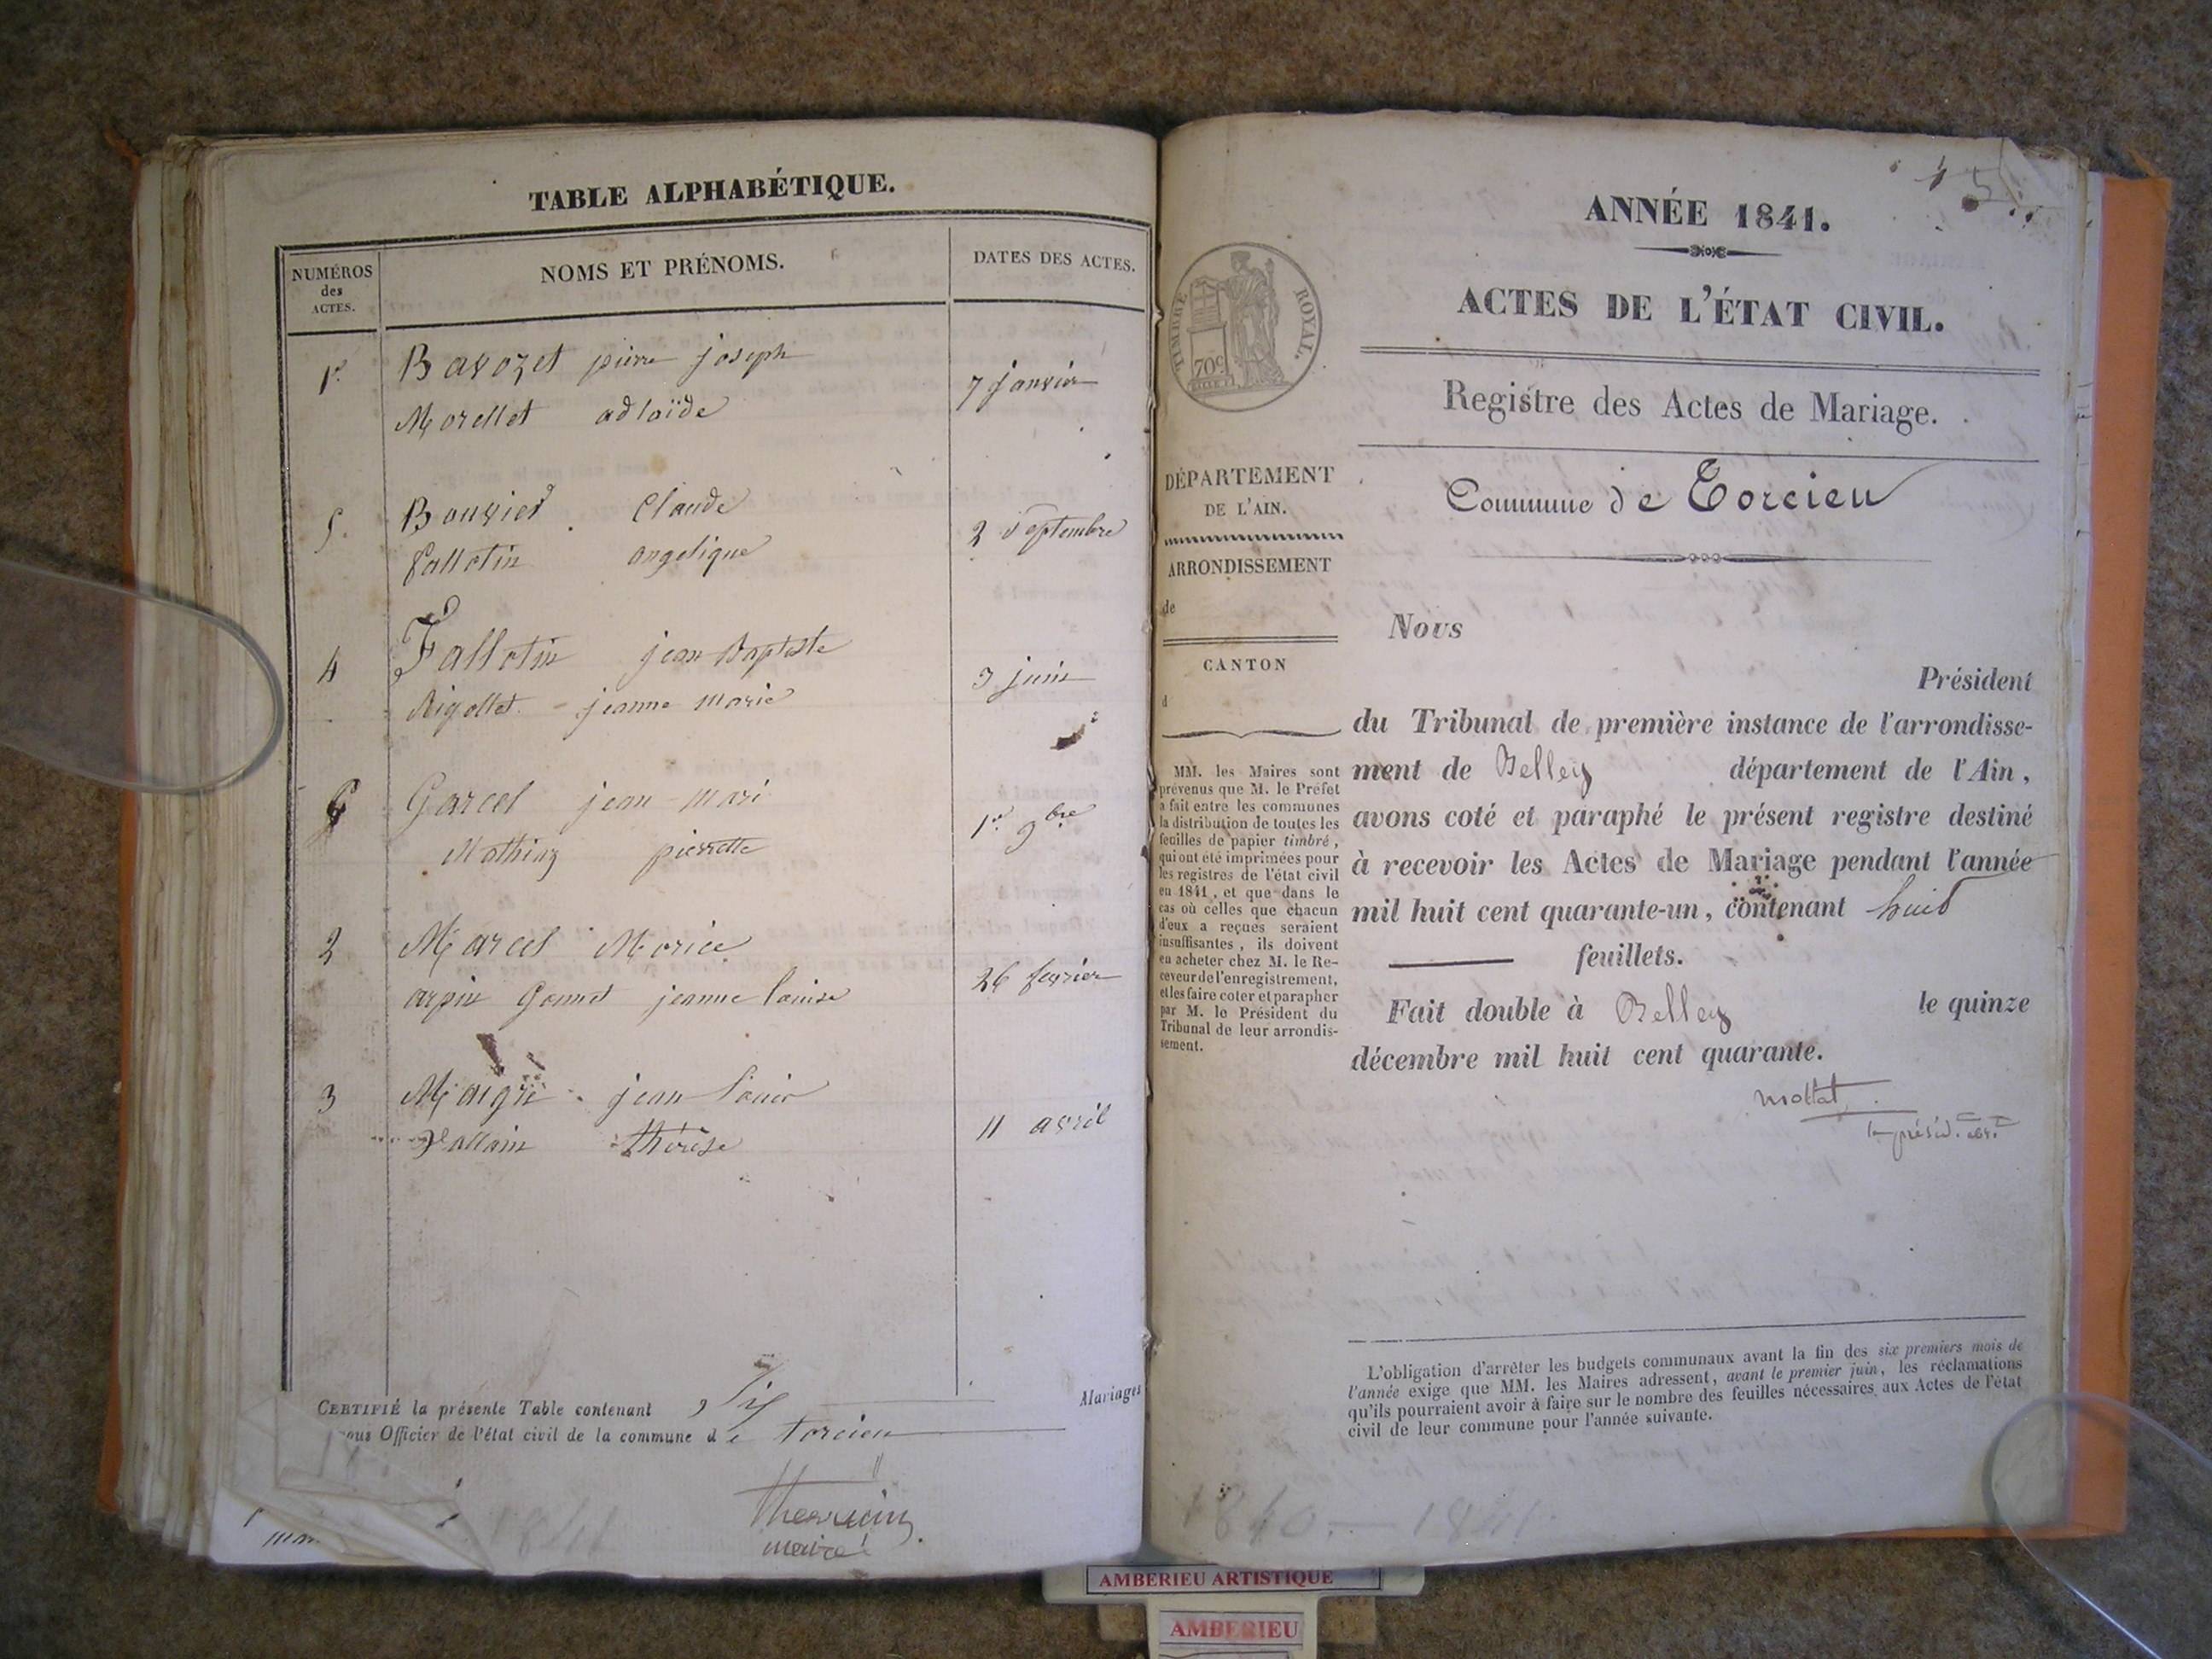 TABLE ALPHABÉTIQUE.
NUMÉROS
des
ACTES.
NOMS ET PRÉNOMS.
DATES DES ACTES.
1.
Bavozet pierre joseph
Morellet adlaïde
7 janvier
5.
Bouvier Claude
fallotin angelique
2 Septembre
4
Fallotin jean Baptiste
Rigollet jeanne marie
3 juin
6
Garcel jean mari
Mathieu pierrette
1er 9bre
2
Marcel Morice
arpin Gonnet jeanne louise
26 fevrier
3
Maigre jean louis
thérèse
11 avril
CERTIFIÉ la présente Table contenant Six Mariages
nous Officier de l'état civil de la commune de torcieu
maire
AMBERIEU ARTISTIQUE
AMBERIEU
ANNÉE 1841.
ACTES DE L'ÉTAT CIVIL.
Registre des Actes de Mariage.
TIMBRE ROYAL.
70c
DÉPARTEMENT
DE L'AIN.
ARRONDISSEMENT
de
CANTON
d
MM. les Maires sont
prévenus que M. le Préfet
a fait entre les communes
la distribution de toutes les
feuilles de papier timbré,
qui ont été imprimées pour
les registres de l'état civil
en 1841, et que dans le
cas où celles que chacun
d'eux a reçues seraient
insuffisantes, ils doivent
en acheter chez M. le Re-
ceveur de l'enregistrement,
et les faire coter et parapher
par M. le Président du
Tribunal de leur arrondis-
sement.
Commune de Torcieu
Nous
Président
du Tribunal de première instance de l'arrondisse-
ment de Belley département de l'Ain,
avons coté et paraphé le présent registre destiné
à recevoir les Actes de Mariage pendant l'année
mil huit cent quarante-un, contenant huit
feuillets.
Fait double à Belley le quinze
décembre mil huit cent quarante.
L'obligation d'arrêter les budgets communaux avant la fin des six premiers mois de
l'année exige que MM. les Maires adressent, avant le premier juin, les réclamations
qu'ils pourraient avoir à faire sur le nombre des feuilles nécessaires aux Actes de l'état
civil de leur commune pour l'année suivante.
1840 — 1841